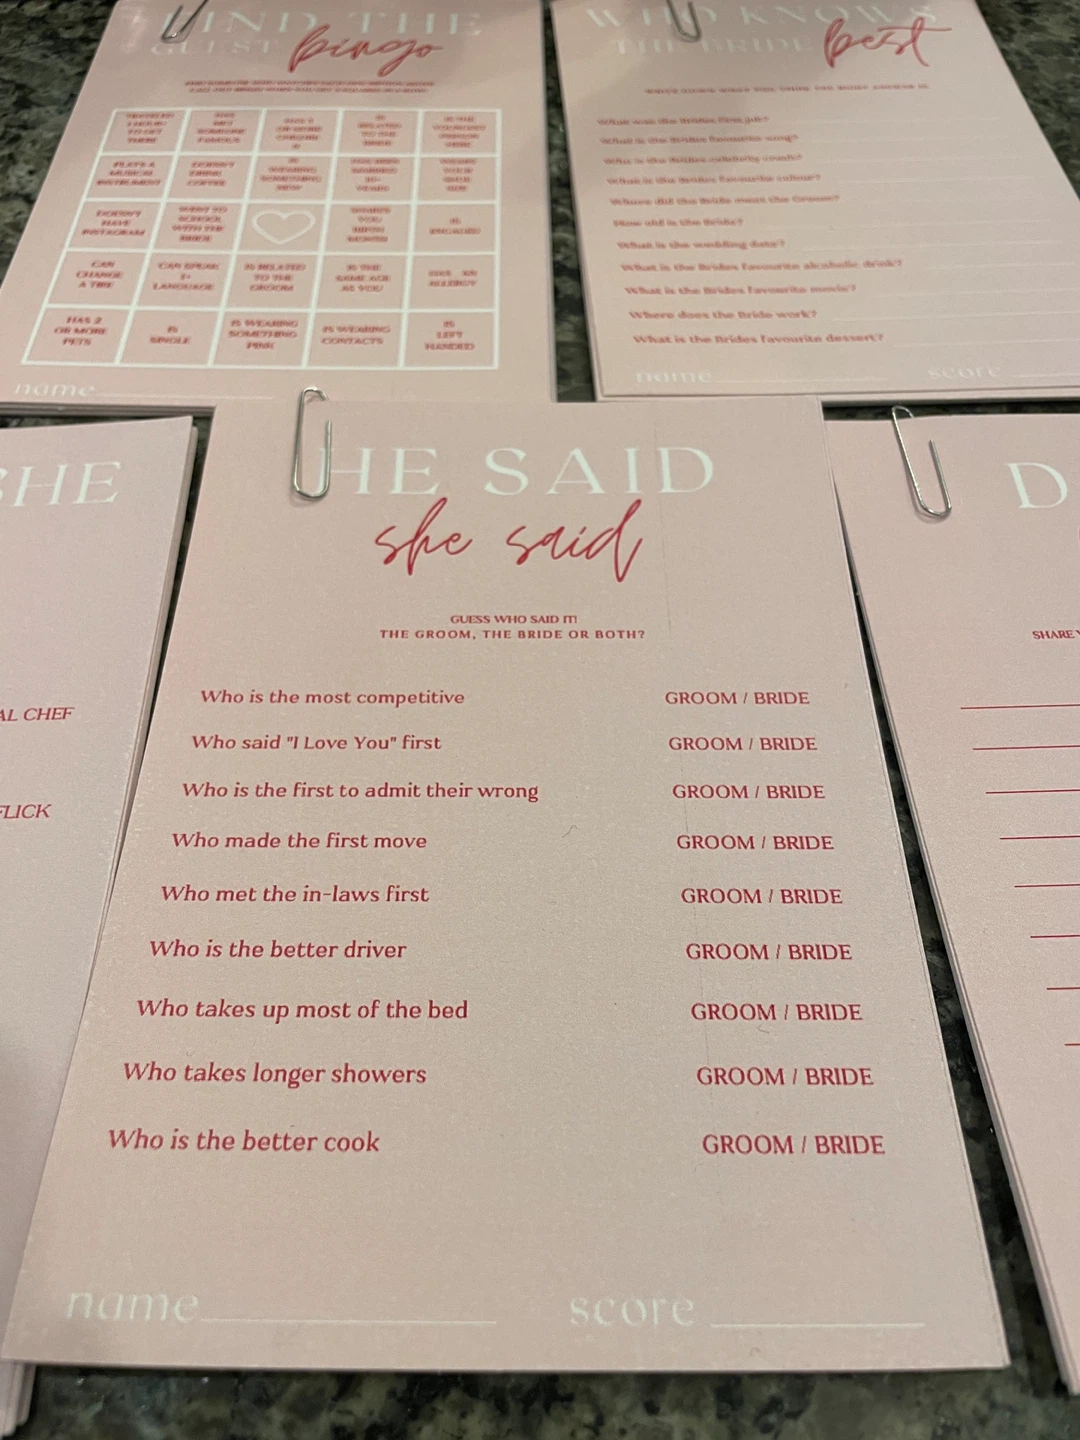 FIND THE
GUEST bingo
HAS 2
OR MORE
PETS
IS
SINGLE
IS WEARING
SOMETHING
PINK
IS WEARING
CONTACTS
IS
LEFT
HANDED
CAN
CHANGE
A TIRE
CAN SPEAK
LANGUAGE
IS RELATED
TO THE
GROOM
IS THE
SAME AGE
AS YOU
HAS AN
ALLERGY
DOESN'T
HAVE
INSTAGRAM
WENT TO
SCHOOL
WITH THE
BRIDE
IS
ENGAGED
PLAYS A
MUSICAL
INSTRUMENT
DOESN'T
DRINK
COFFEE
IS
WEARING
SOMETHING
NEW
name
WHO KNOWS
THE BRIDE best
What was the Brides first job?
What is the Brides favourite song?
Who is the Brides celebrity crush?
What is the Brides favourite colour?
Where did the Bride meet the Groom?
How old is the Bride?
What is the wedding date?
What is the Brides favourite alcoholic drink?
What is the Brides favourite movie?
Where does the Bride work?
What is the Brides favourite dessert?
name score
SHE
AL CHEF
FLICK
HE SAID
she said
GUESS WHO SAID IT!
THE GROOM, THE BRIDE OR BOTH?
Who is the most competitive GROOM / BRIDE
Who said "I Love You" first GROOM / BRIDE
Who is the first to admit their wrong GROOM / BRIDE
Who made the first move GROOM / BRIDE
Who met the in-laws first GROOM / BRIDE
Who is the better driver GROOM / BRIDE
Who takes up most of the bed GROOM / BRIDE
Who takes longer showers GROOM / BRIDE
Who is the better cook GROOM / BRIDE
name score
D
SHARE